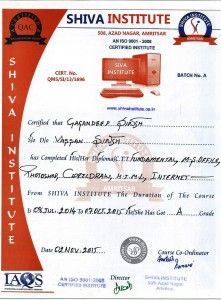 SHIVA INSTITUTE
508, AZAD NAGAR, AMRITSAR
AN ISO 9001 - 2008
CERTIFIED INSTITUTE
QAC
SHIVA INSTITUTE
CERT. NO.
QMS/SI/13/1696
BATCH No. A
www.shivainstitute.co.in
Certified that Gagandeep Singh
S/o D/o Kappan Singh
has Completed His/Her Diploma I.T. Fundamental, M.S Office,
Photoshop, CorelDraw, H.T.M.L, Internet
From SHIVA INSTITUTE The Duration of the Course
is 08 Jul. 2014 To 07 Oct. 2015 He/She Has Got A Grade
Date 02 Nov. 2015
Director
Course Co-Ordinator
IAQS
AN ISO 9001-2008
CERTIFIED INSTITUTE
SHIVA INSTITUTE
508 Azad Nagar
Amritsar